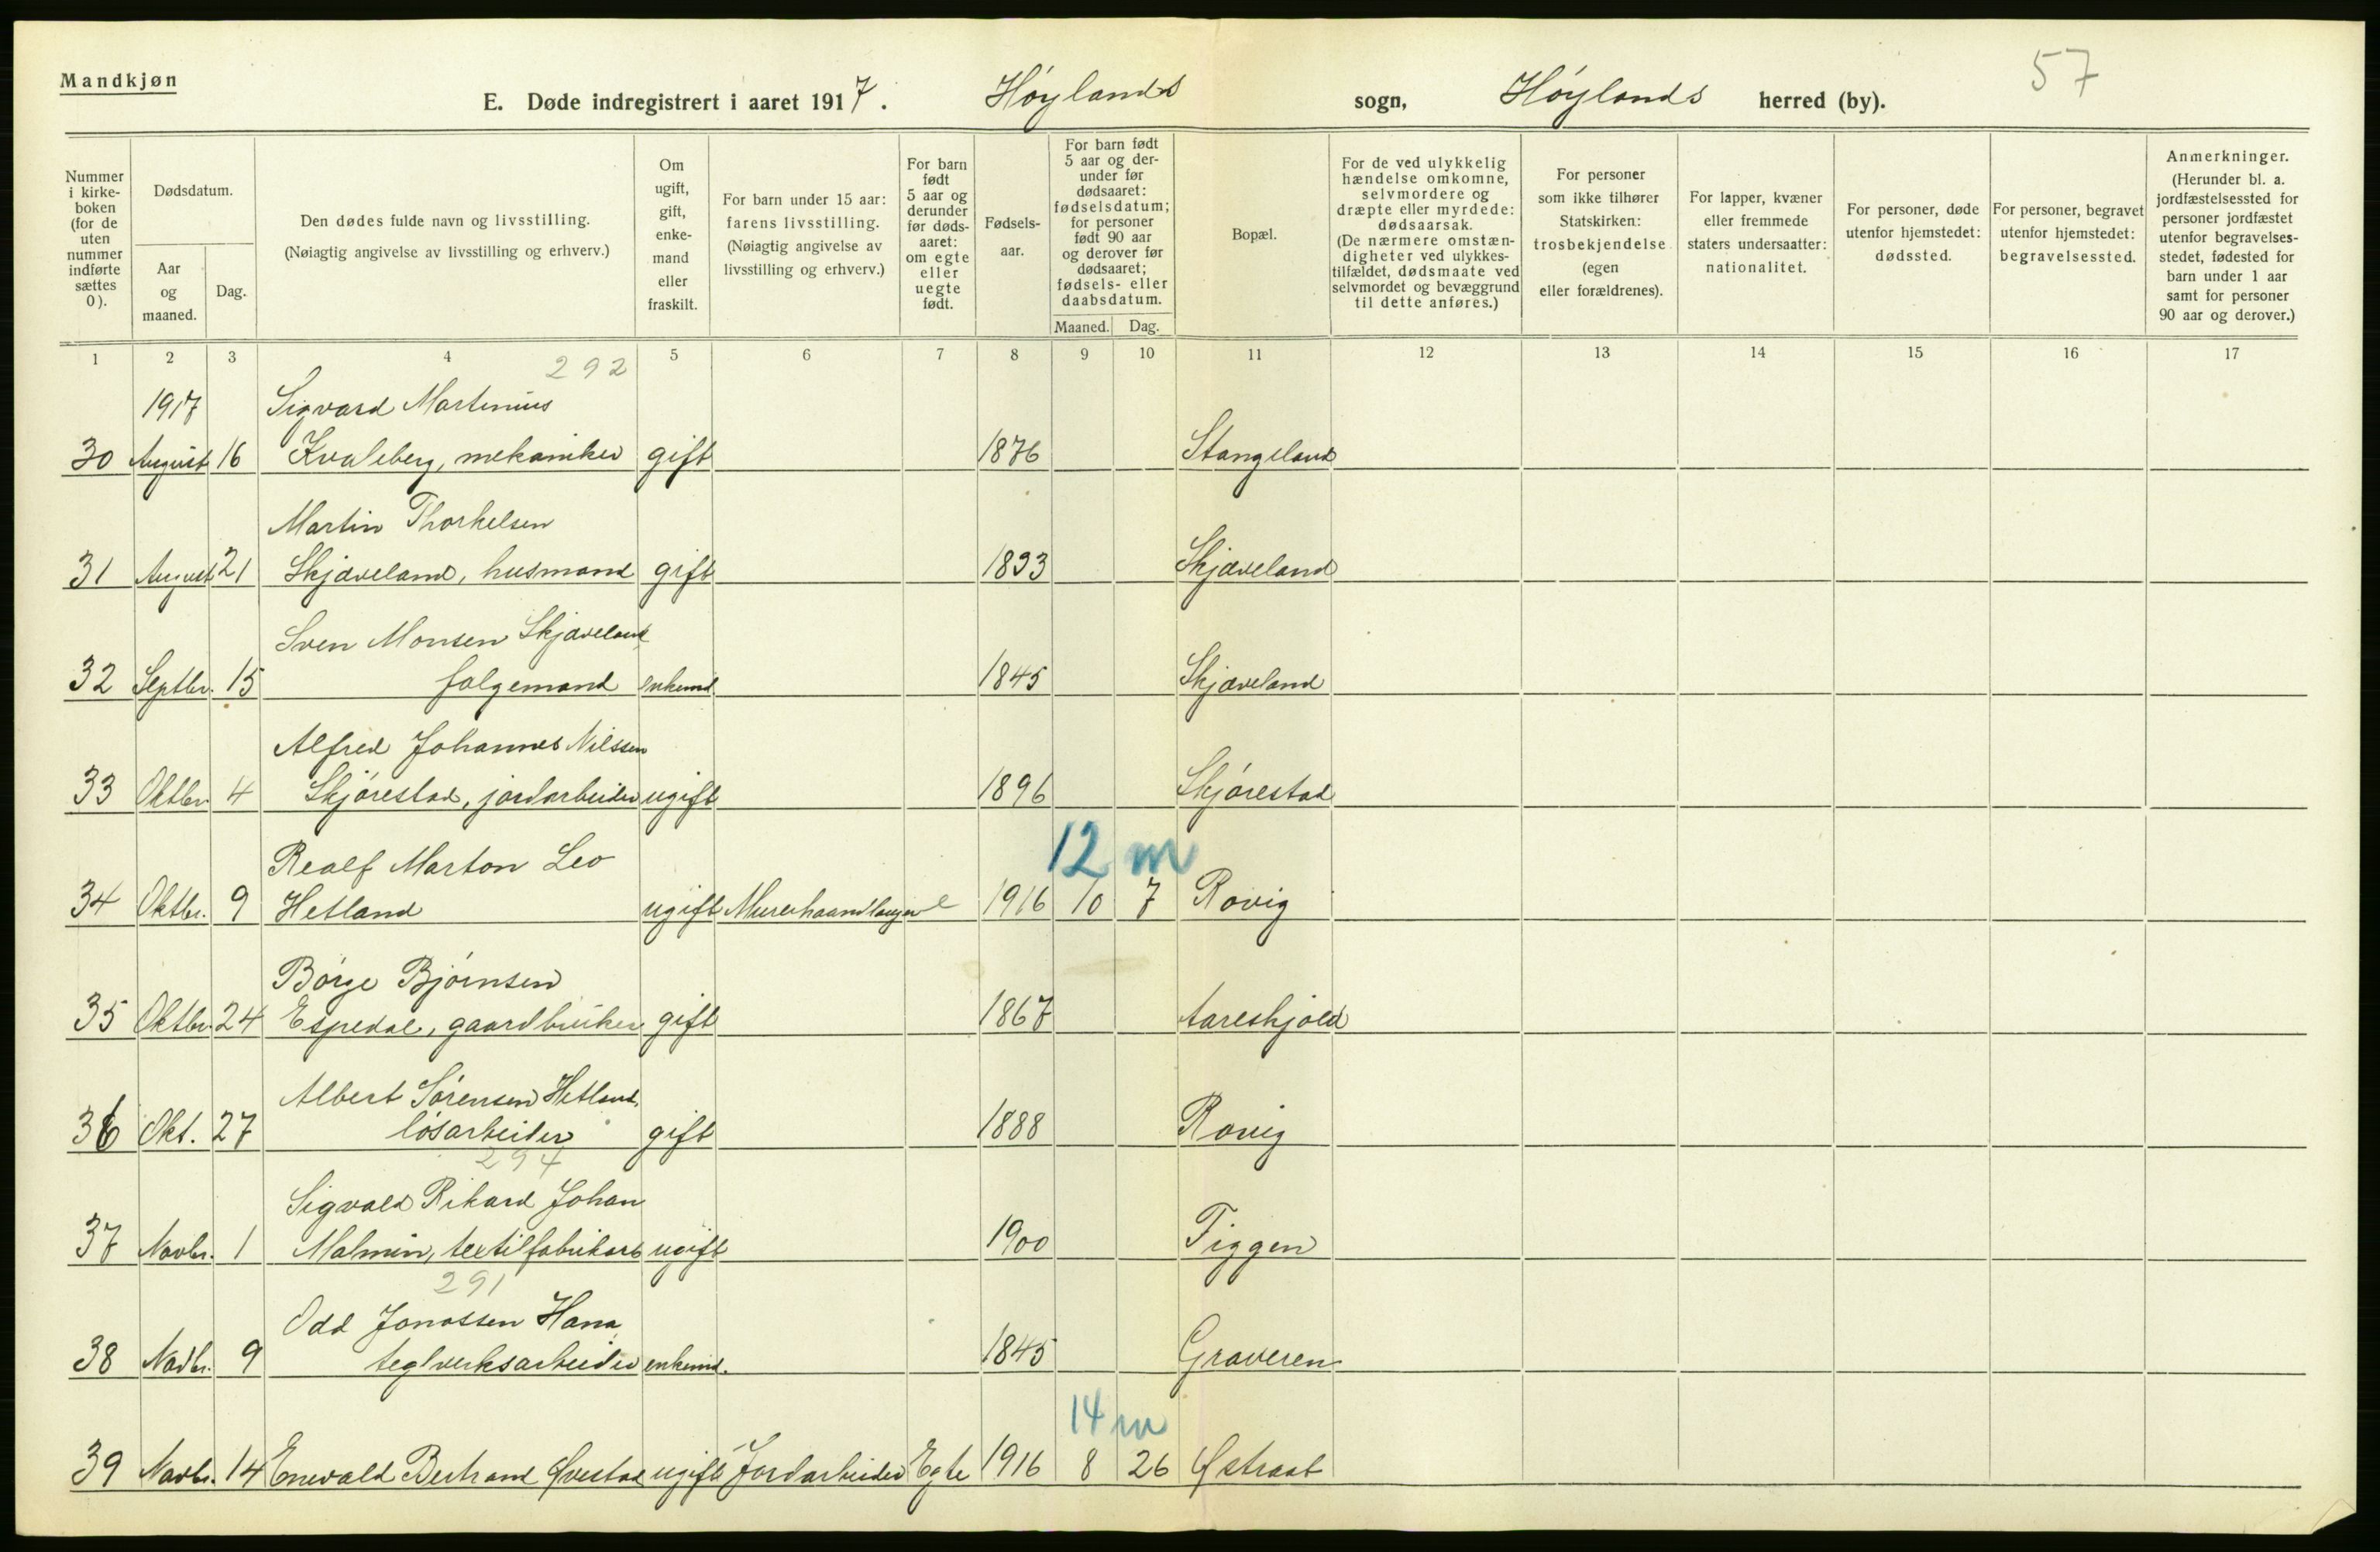 Mandkjøn
57
E. Døde indregistrert i aaret 1917. Høylands sogn, Høylands herred (by).
Nummer i kirke-boken (for de uten nummer indførte sættes 0).
Dødsdatum.
Aar og maaned.
Dag.
Den dødes fulde navn og livsstilling.
(Nøiagtig angivelse av livsstilling og erhverv.)
Om ugift, gift, enke-mand eller fraskilt.
For barn under 15 aar: farens livsstilling.
(Nøiagtig angivelse av livsstilling og erhverv.)
For barn født 5 aar og derunder før døds-aaret: om egte eller uegte født.
Fødsels-aar.
For barn født 5 aar og der-under før dødsaaret: fødselsdatum; for personer født 90 aar og derover før dødsaaret; fødsels- eller daabsdatum.
Maaned. Dag.
Bopæl.
For de ved ulykkelig hændelse omkomne, selvmordere og dræpte eller myrdede: dødsaarsak.
(De nærmere omstæn-digheter ved ulykkes-tilfældet, dødsmaate ved selvmordet og bevæggrund til dette anføres.)
For personer som ikke tilhører Statskirken: trosbekjendelse (egen eller forældrenes).
For lapper, kvæner eller fremmede staters undersaatter: nationalitet.
For personer, døde utenfor hjemstedet: dødssted.
For personer, begravet utenfor hjemstedet: begravelsessted.
Anmerkninger.
(Herunder bl. a. jordfæstelsessted for personer jordfæstet utenfor begravelses-stedet, fødested for barn under 1 aar samt for personer 90 aar og derover.)
1 2 3 4 5 6 7 8 9 10 11 12 13 14 15 16 17
292
1917 Sigvard Martinius
30 August 16 Kvaleberg, mekaniker gift 1876 Stangeland
Martin Thorkelsen
31 August 21 Skjæveland, husmand gift 1833 Skjæveland
Sven Monsen Skjæveland
32 Septbr. 15 følgemand enkemd 1845 Skjæveland
Alfred Johannes Nilssen
33 Oktbr. 4 Skjørestad, jordarbeider ugift 1896 Skjørestad
12 m
Realf Marton Leo
34 Oktbr. 9 Hetland ugift Murerhaandlanger e 1916 10 7 Rovig
Børge Bjørnsen
35 Oktbr. 24 Espedal, gaardbruker gift 1867 Aareskjold
Albert Sørensen Hetland,
36 Okt. 27 løsarbeider gift 1888 Rovig
294
Sigvald Rikard Johan
37 Novbr. 1 Malmin, textilfabrikarb ugift 1900 Figgen
291
Odd Jonassen Hana
38 Novbr. 9 teglverksarbeider enkemd. 1845 Graveren
14 m
39 Novbr. 14 Enevald Bertrand Øvestad ugift Jordarbeider Egte 1916 8 26 Østraat